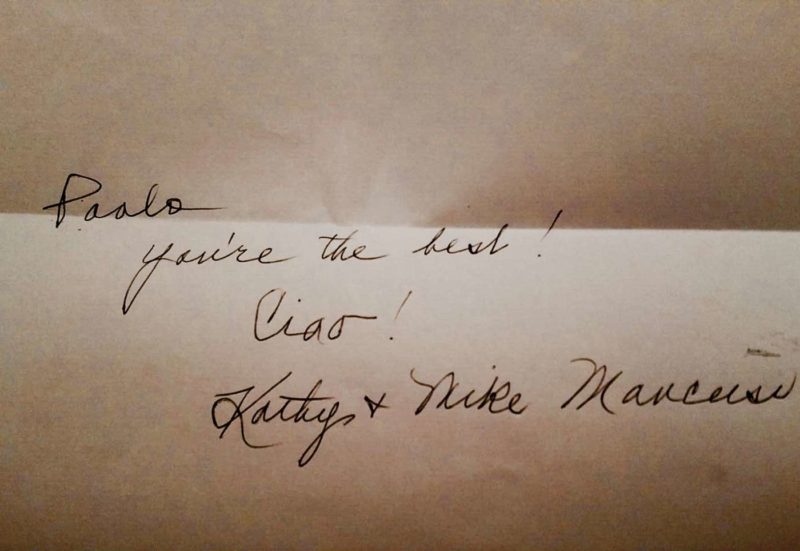 Paolo
you're the best!
Ciao!
Kathy & Mike Mancusi